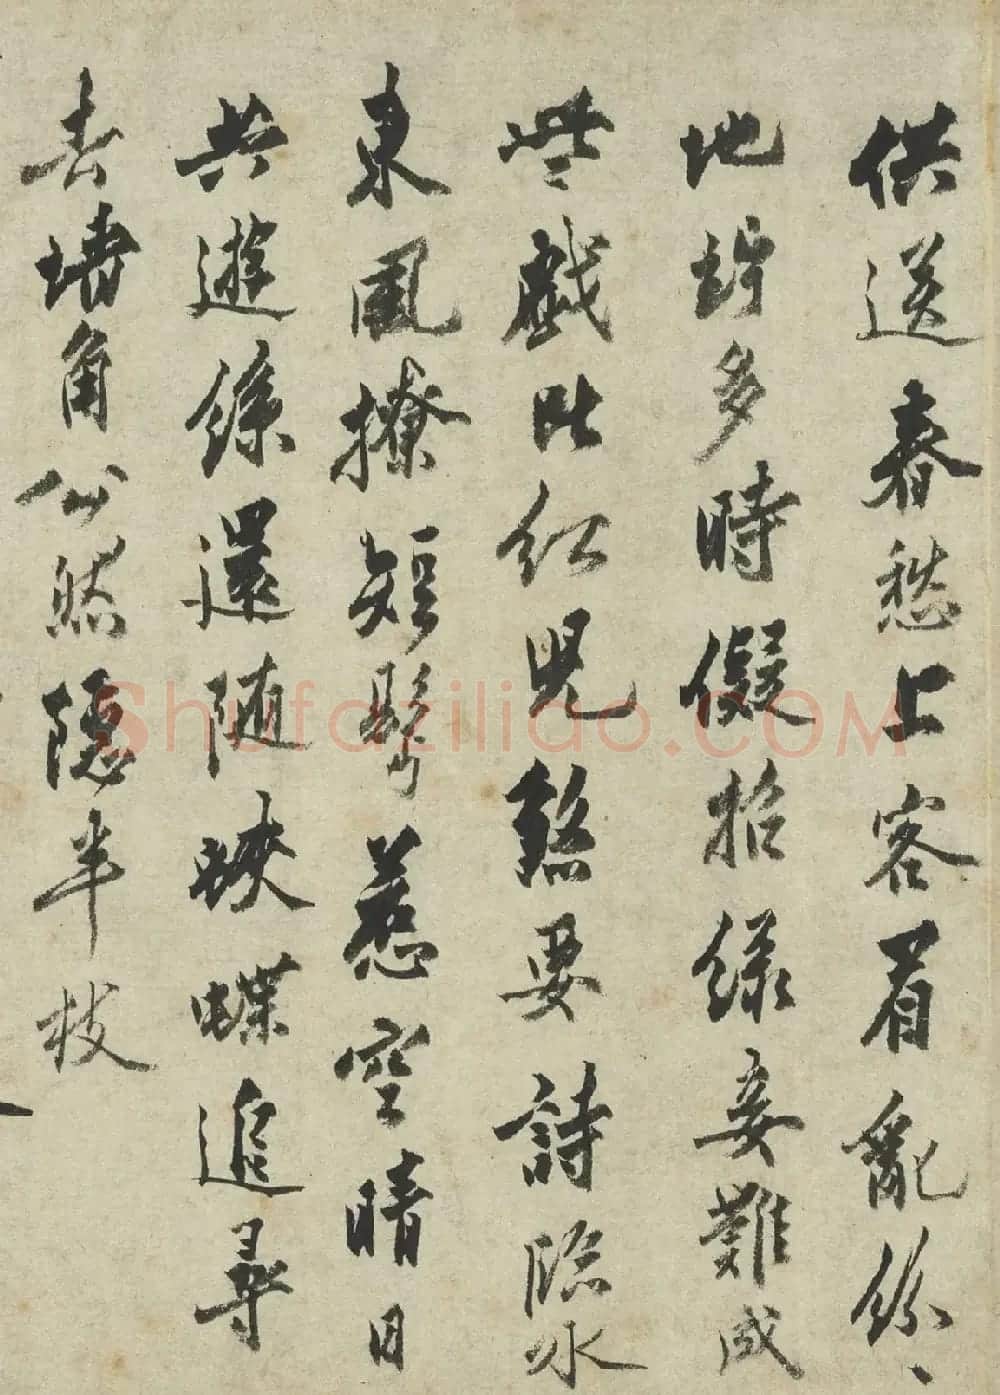 供送春愁上客眉亂紛〻
地竚多時儗招綠妾難成
些戲比紅兒煞要詩臨水
東風撩短鬢惹空晴日
共遊絲還随蛺蝶追尋
去墻角公然隱半枝
Shufaziliao.COM